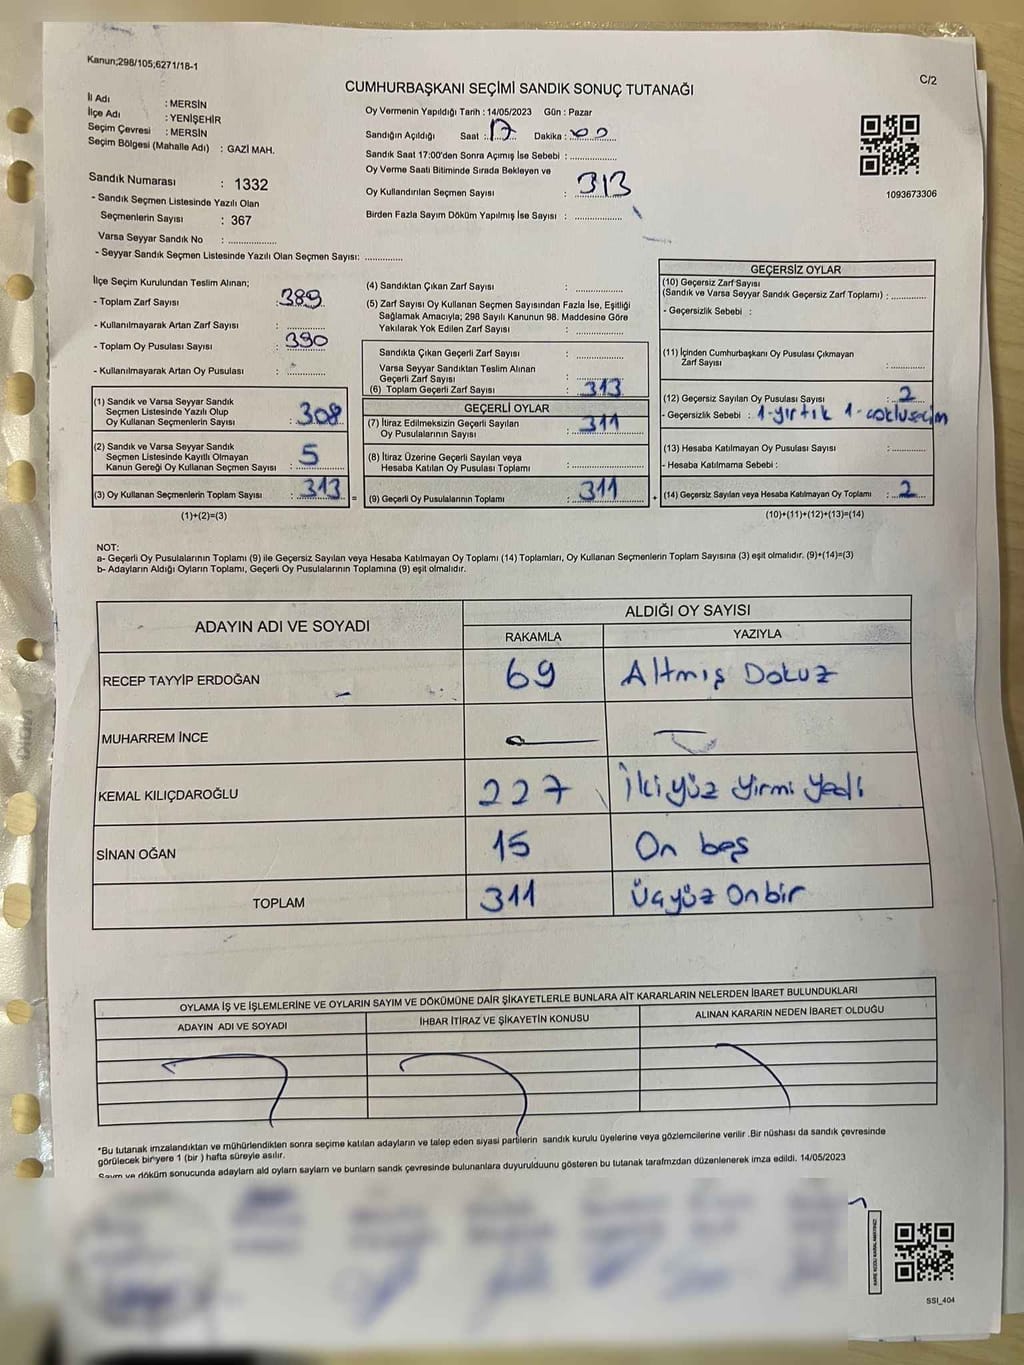 Kanun;298/105;6271/18-1
C/2
CUMHURBAŞKANI SEÇİMİ SANDIK SONUÇ TUTANAĞI
İl Adı : MERSİN
İlçe Adı : YENİŞEHİR
Seçim Çevresi : MERSİN
Seçim Bölgesi (Mahalle Adı) : GAZİ MAH.
Sandık Numarası : 1332
- Sandık Seçmen Listesinde Yazılı Olan
Seçmenlerin Sayısı : 367
Varsa Seyyar Sandık No : ..............
- Seyyar Sandık Seçmen Listesinde Yazılı Olan Seçmen Sayısı: ............
Oy Vermenin Yapıldığı Tarih : 14/05/2023 Gün : Pazar
Sandığın Açıldığı Saat : 17 Dakika : 00
Sandık Saat 17:00'den Sonra Açımış İse Sebebi : ..............
Oy Verme Saati Bitiminde Sırada Bekleyen ve
Oy Kullandırılan Seçmen Sayısı : 313
Birden Fazla Sayım Döküm Yapılmış İse Sayısı : ..............
1093673306
İlçe Seçim Kurulundan Teslim Alınan;
- Toplam Zarf Sayısı : 389
- Kullanılmayarak Artan Zarf Sayısı : ............
- Toplam Oy Pusulası Sayısı : 390
- Kullanılmayarak Artan Oy Pusulası : ............
(1) Sandık ve Varsa Seyyar Sandık
Seçmen Listesinde Yazılı Olup
Oy Kullanan Seçmenlerin Sayısı : 308
(2) Sandık ve Varsa Seyyar Sandık
Seçmen Listesinde Kayıtlı Olmayan
Kanun Gereği Oy Kullanan Seçmen Sayısı : 5
(3) Oy Kullanan Seçmenlerin Toplam Sayısı : 313 =
(1)+(2)=(3)
(4) Sandıktan Çıkan Zarf Sayısı : ..............
(5) Zarf Sayısı Oy Kullanan Seçmen Sayısından Fazla İse, Eşitliği
Sağlamak Amacıyla; 298 Sayılı Kanunun 98. Maddesine Göre
Yakılarak Yok Edilen Zarf Sayısı : ..............
Sandıkta Çıkan Geçerli Zarf Sayısı : ..............
Varsa Seyyar Sandıktan Teslim Alınan
Geçerli Zarf Sayısı : ..............
(6) Toplam Geçerli Zarf Sayısı : 313
GEÇERLİ OYLAR
(7) İtiraz Edilmeksizin Geçerli Sayılan
Oy Pusulasının Sayısı : 311
(8) İtiraz Üzerine Geçerli Sayılan veya
Hesaba Katılan Oy Pusulası Toplamı : ..............
(9) Geçerli Oy Pusulalarının Toplamı : 311 +
GEÇERSİZ OYLAR
(10) Geçersiz Zarf Sayısı
(Sandık ve Varsa Seyyar Sandık Geçersiz Zarf Toplamı) : ............
- Geçersizlik Sebebi :
(11) İçinden Cumhurbaşkanı Oy Pusulası Çıkmayan
Zarf Sayısı : ............
(12) Geçersiz Sayılan Oy Pusulası Sayısı : 2
- Geçersizlik Sebebi : 1-yırtık 1-çoklu seçim
(13) Hesaba Katılmayan Oy Pusulası Sayısı : ............
- Hesaba Katılmama Sebebi :
(14) Geçersiz Sayılan veya Hesaba Katılmayan Oy Toplamı : 2
(10)+(11)+(12)+(13)=(14)
NOT:
a- Geçerli Oy Pusulalarının Toplamı (9) ile Geçersiz Sayılan veya Hesaba Katılmayan Oy Toplamı (14) Toplamları, Oy Kullanan Seçmenlerin Toplam Sayısına (3) eşit olmalıdır. (9)+(14)=(3)
b- Adayların Aldığı Oyların Toplamı, Geçerli Oy Pusulalarının Toplamına (9) eşit olmalıdır.
ADAYIN ADI VE SOYADI
ALDIĞI OY SAYISI
RAKAMLA YAZIYLA
RECEP TAYYİP ERDOĞAN 69 Altmış Dokuz
MUHARREM İNCE
KEMAL KILIÇDAROĞLU 227 İkiyüz Yirmi Yedi
SİNAN OĞAN 15 On beş
TOPLAM 311 Üçyüz Onbir
OYLAMA İŞ VE İŞLEMLERİNE VE OYLARIN SAYIM VE DÖKÜMÜNE DAİR ŞİKAYETLERLE BUNLARA AİT KARARLARIN NELERDEN İBARET BULUNDUKLARI
ADAYIN ADI VE SOYADI İHBAR İTİRAZ VE ŞİKAYETİN KONUSU ALINAN KARARIN NEDEN İBARET OLDUĞU
*Bu tutanak imzalandıktan ve mühürlendikten sonra seçime katılan adayların ve talep eden siyasi partilerin sandık kurulu üyelerine veya gözlemcilerine verilir .Bir nüshası da sandık çevresinde
görülecek bir yere 1 (bir ) hafta süreyle asılır.
Sayım ve döküm sonucunda adayların ald oyların sayların ve bunların sandk çevresinde bulunanlara duyurulduunu gösteren bu tutanak tarafmzdan düzenlenerek imza edildi. 14/05/2023
SSI_404